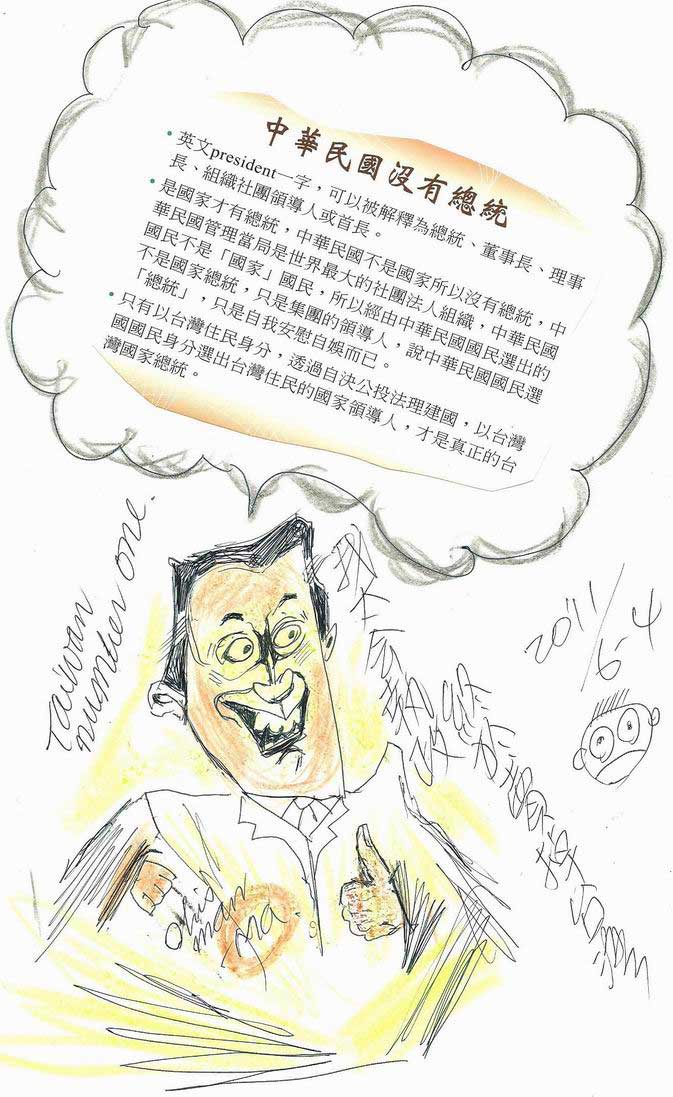 中華民國沒有總統
• 英文president一字，可以被解釋為總統、董事長、理事
長、組織社團領導人或首長。
• 是國家才有總統，中華民國不是國家所以沒有總統，中
華民國管理當局是世界最大的社團法人組織，中華民國
國民不是「國家」國民，所以經由中華民國國民選出的
不是國家總統，只是集團的領導人，說中華民國國民選
「總統」，只是自我安慰自娛而已。
• 只有以台灣住民身分，透過自決公投法理建國，以台灣
國國民身分選出台灣住民的國家領導人，才是真正的台
灣國家總統。
Taiwan
number one.
2011/6-4
man
ma